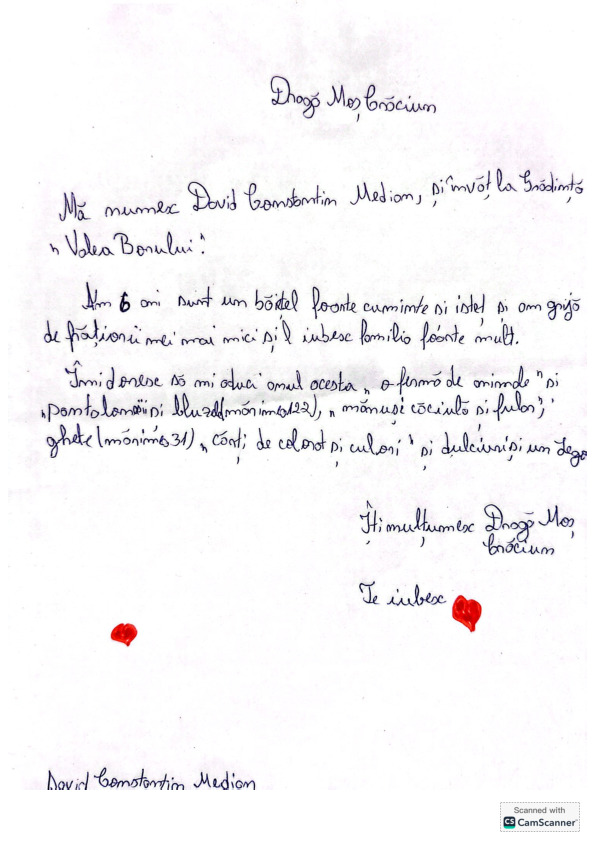 Dragă Moș Crăciun
Mă numex David Constantin Median, și învăț la Grădiniță
„Valea Bonului".
Am 6 ani sunt un băițel foarte cuminte și isteț și am grijă
de frățiorii mei mai mici și l iubesc familia foarte mult.
Îmi doresc să mi aduci anul acesta „o fermă de animale" și
„pantalonii și bluză(mărimea122), „mănuși căciulă și fular",
ghete(mărimea31) „cărți de colorat și culori" și dulciuri și un Lego
Îți mulțumex Dragă Moș
Crăciun
Te iubex
David Constantin Median
Scanned with
CS CamScanner